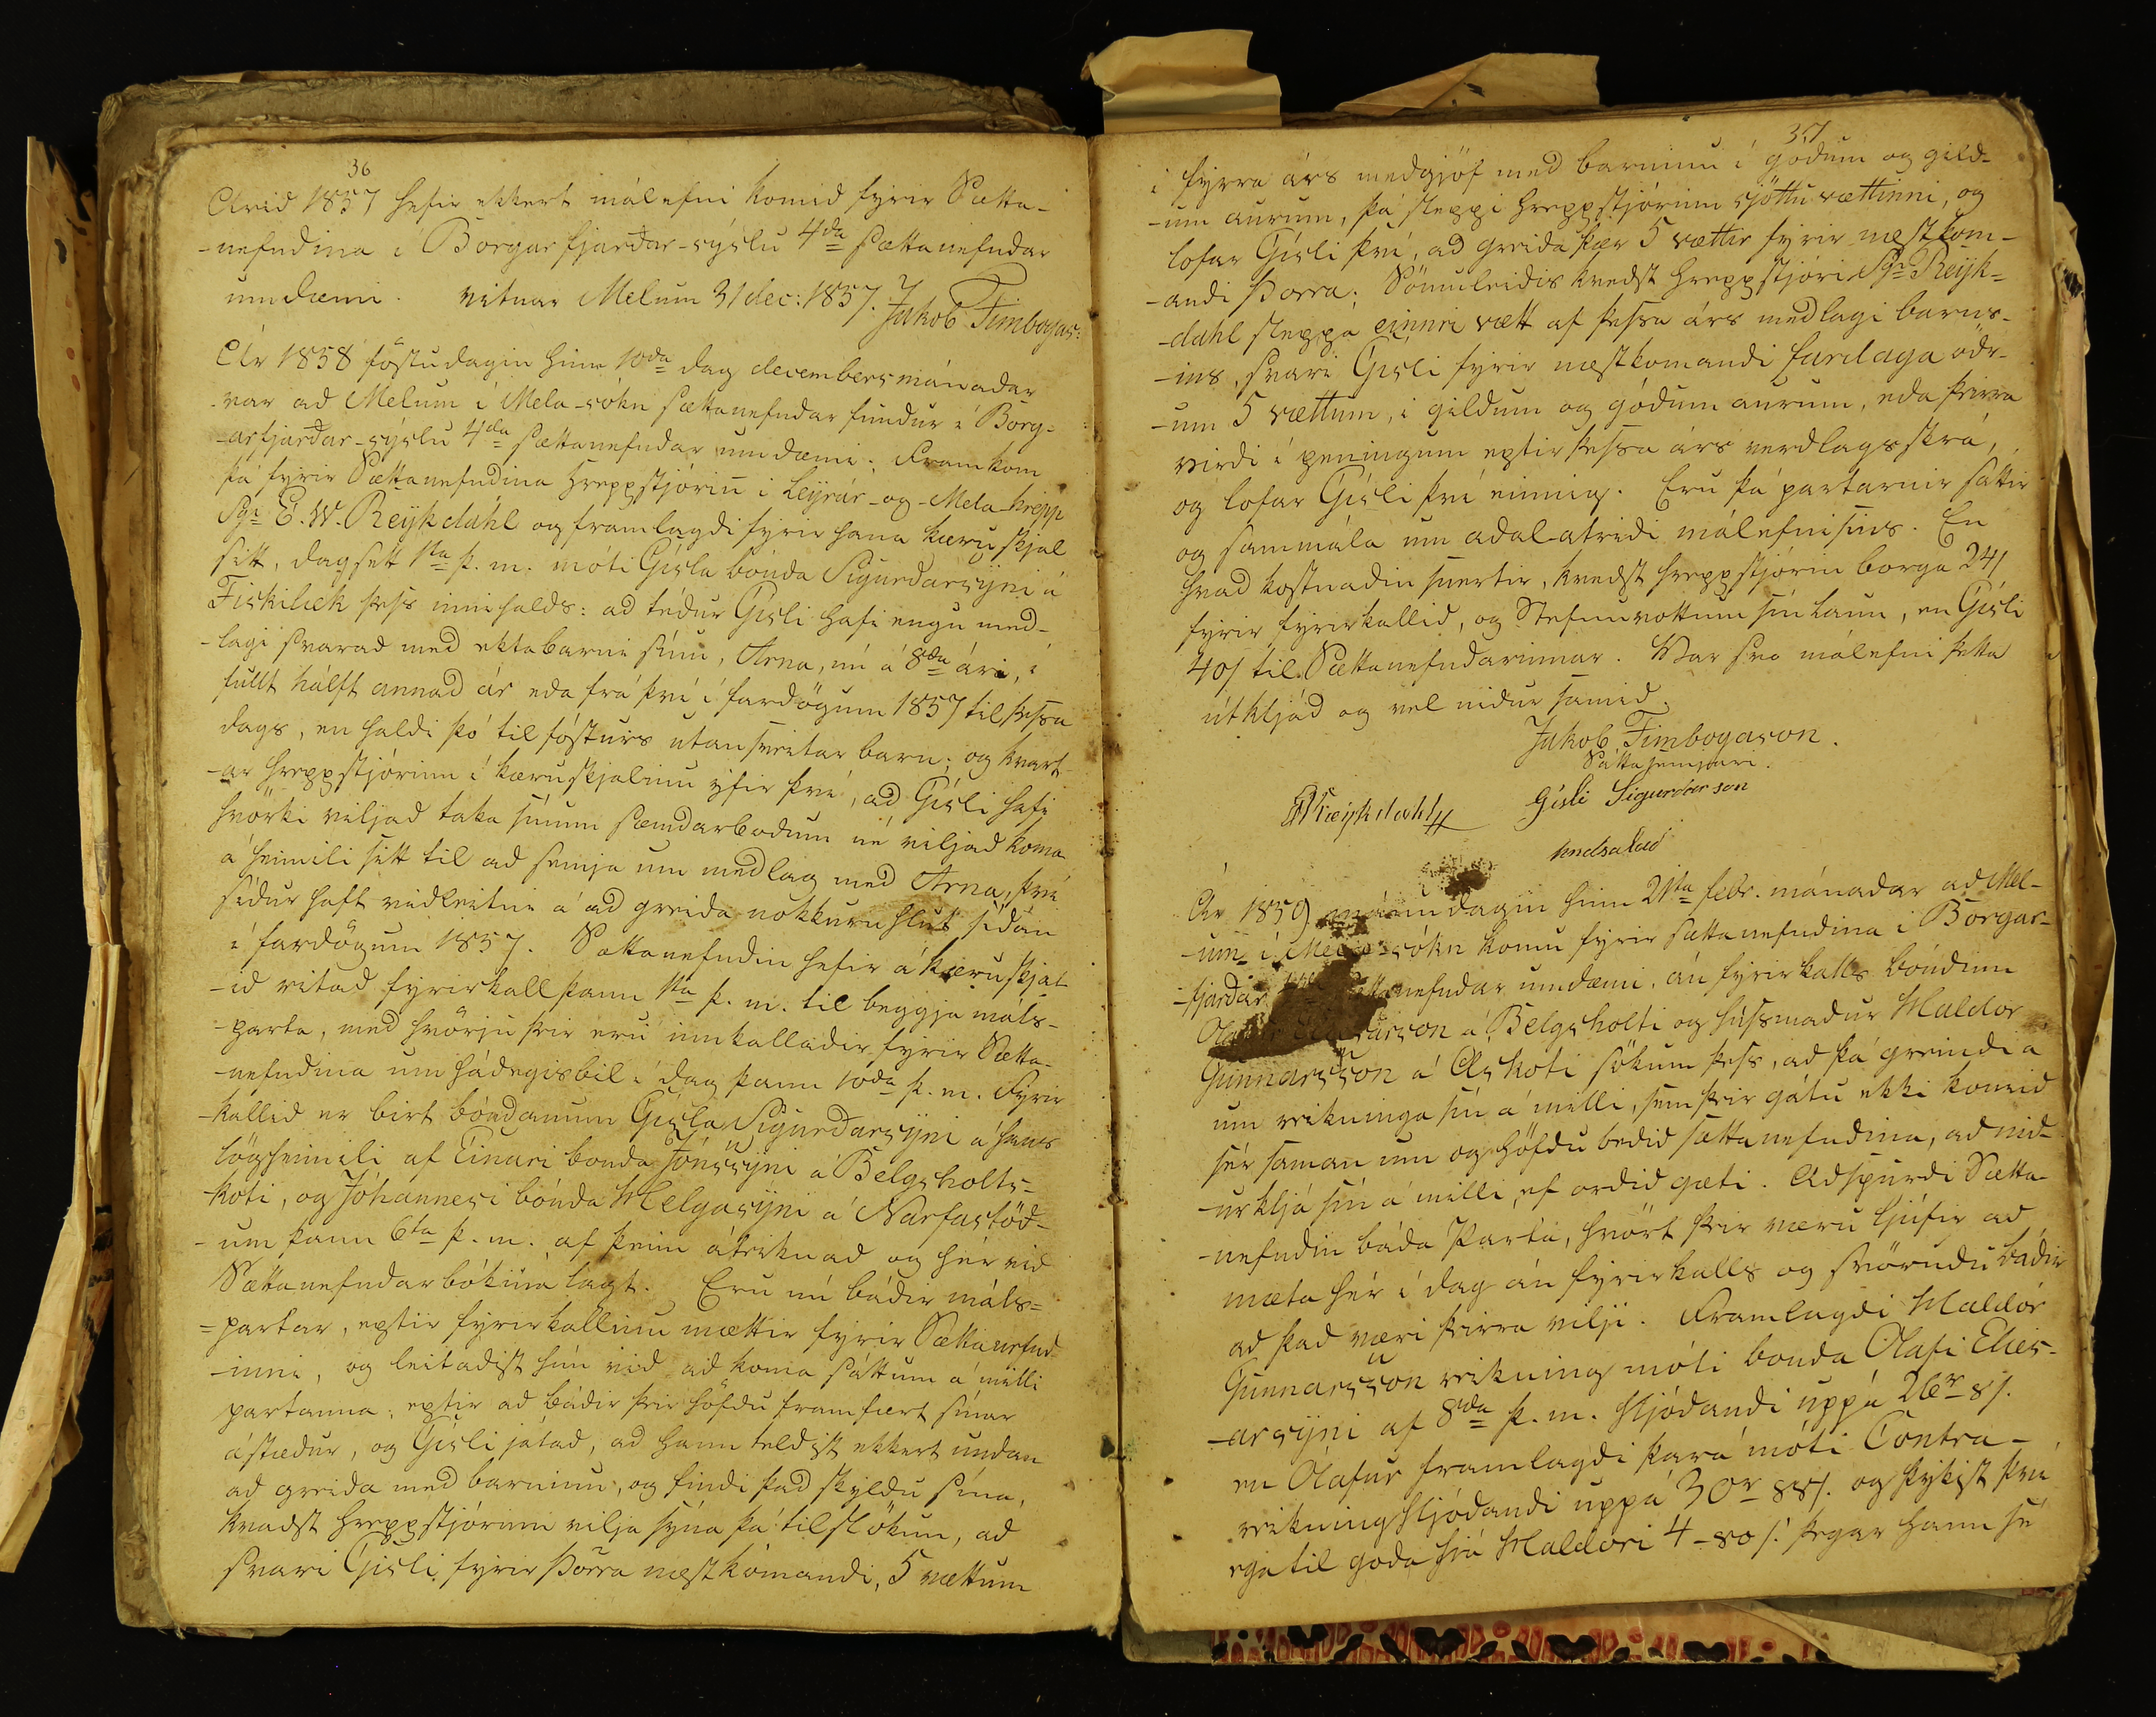 36
Árid 1857 hefir ekkert málefni komid fyrir Sætta-
-nefndina í Borgarfjarðar-sýslu 4da sættanefndar
umdæmi. vitnar Melum 31 dec: 1857. Jakob Finnbogas:
Ár 1858 föstudagin hinn 10da dag decembersmánadar
var ad Melum í Mela-sókn sættanefndar fundur í Borg-
-arfjarðar-sýslu 4da sættanefndar umdæmi; Framkom
þá fyrir Sættanefndina hreppstjórin í Leyrár-og-Mela-hrepp
Sgr E. W. Reykdahl og framlagdi fyrir hana kæruskjal
sitt, dagsett 1sta þ. m. móti Gísla bónda Sigurdarsyni á
Fiskilæk þess innihalds: ad tédur Gísli hafi engu med-
-lagi svarad med ektabarni sínu, Arna, nú á 8da ári, í
fullt hálft annad ár eda frá því í fardögum 1857 til þessa
dags, en haldi þó til fósturs utansveitar barn; og kvart-
-ar hreppstjórinn í kæruskjalinu yfir því, ad Gísli hafi
hvörki viljad taka sínum sæmdarbodum né viljad koma
á heimili sitt til ad semja um medlag med Arna, því
sídur haft vidleitni á ad greida nokkurn hlut sídan
í fardögum 1857. Sættanefndin hefir á kæruskjal-
-id ritad fyrirkall þann 1sta þ. m. til beggja máls-
-parta, med hvörju þeir eru innkalladir fyrir Sætta-
-nefndina um hádegisbil í dag þann 10da þ. m. Fyrir-
-kallid er birt bóndanum Gísla Sigurdarsyni á hans
lögheimili af Einari bónda Jónssyni á Belgsholts-
-koti, og Jóhannesi bónda Helgasyni á Narfastöd-
-um þann 6ta þ. m. af þeim áteiknad og hér vid
Sættanefndarbókina lagt. Eru nú bádir máls-
-partar, eptir fyrirkallinu mættir fyrir Sættanefnd-
-inni, og leitadist hún vid ad koma sáttum á milli
partanna; eptir ad bádir þeir höfdu framfært sínar
ástædur, og Gísli játad, ad hann teldist ekkert undan
ad greida med barninu, og findi þad skyldu sína,
kvadst hreppstjórinn vilja sýna þá tilslökun, ad
svari Gísli fyrir Þorra næstkomandi, 5 vættum
37
í fyrra árs medgjöf med barninu í gódum og gild-
-um aurum, þá sleppi hreppstjórinn sjöttu vættinni, og
lofar Gísli því, ad greida þær 5 vættir fyrir næstkom-
-andi Þorra; Sömuleidis kvedst hreppstjóri Sgr Reyk-
-dahl sleppa einni vætt af þessa árs medlagi barns-
-ins, svari Gisli fyrir næstkomandi fardaga ödr-
-um 5 vættum, í gildum og gódum aurum, eda þeirra
virdi í peningum eptir þessa árs verdlagsskrá,
og lofar Gísli því einnig. Eru þá partarnir sáttir
og sammála um adal-atridi málefnisins. En
hvad kostnadin snertir, kvedst hreppstjórin borga 24/
fyrir fyrirkallid, og Stefnuvottum sín laun, en Gísli
40/ til Sættanefndarinnar. Var svo málefni þetta
útkljád og vel nidur samid.
Jakob Finnbogason.
Sáttasemjari.
EWReykdahl Gísli Sigurdarson
handsalad
Ár 1859 mánudagin hinn 21ta febr. mánadar ad Mel-
-um í Mela-sókn komu fyrir sættanefndina í Borgar-
-fjardar sættanefndar umdæmi, án fyrirkalls bóndinn
á Belgsholti og húsmadur Haldor
Gunnarsson á Áskoti sökum þess, ad þá greindi á
um reikninga sín á milli, sem þeir gátu ekki komid
sér saman um og höfdu bedid sættanefndina, ad nid-
-urkljá sín á milli, ef ordid gæti. Adspurdi Sætta-
-nefndin báda Parta, hvört þeir væru ljúfir ad
mæta hér í dag án fyrirkalls og svörudu bádir
ad þad væri þeirra vilji. Framlagdi Haldór
Gunnarsson reikning móti bónda Olafi Einars-
-arsyni af 8da þ. m. hljódandi uppá 26r 8/.
en Ólafur framlagdi þará móti Contra-
reikning hljódandi uppá 30r 88/. og þykist því
ega til góda hjá Haldori 4-80/. þegar hann sé